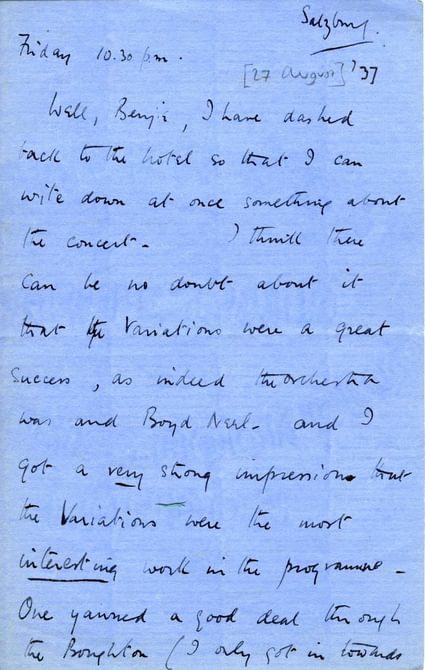 Salzburg.
Friday 10.30 p.m.
[27 August] '37
Well, Benjie, I have dashed
back to the hotel so that I can
write down at once something about
the concert - I think there
can be no doubt about it
that the Variations were a great
success, as indeed the orchestra
was and Boyd Neel - and I
got a very strong impression that
the Variations were the most
interesting work in the programme -
One yawned a good deal through
the Boughton (I only got in towards